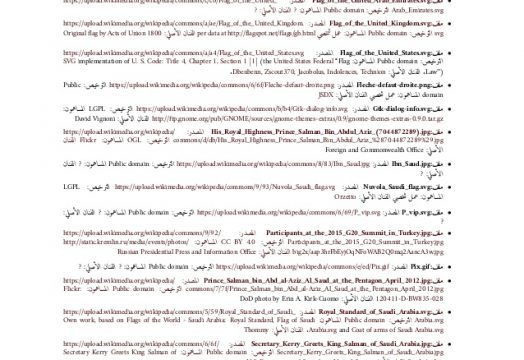 ملف:Flag_of_the_United_Arab_Emirates.svg المصدر: https://upload.wikimedia.org/wikipedia/commons/c/cb/Flag_of_the_United_
Arab_Emirates.svg الرخيص: Public domain المساهمون: ? الفنان الأصلي: ?
• ملف:Flag_of_the_United_Kingdom.svg المصدر: https://upload.wikimedia.org/wikipedia/commons/a/ae/Flag_of_the_United_Kingdom.
svg الرخيص: Public domain المساهمون: عمل شخصي per data at http://flagspot.net/flags/gb.html الفنان الأصلي: Original flag by Acts of Union 1800
• ملف:Flag_of_the_United_States.svg المصدر: https://upload.wikimedia.org/wikipedia/commons/a/a4/Flag_of_the_United_States.svg
الرخيص: Public domain المساهمون: SVG implementation of U. S. Code: Title 4, Chapter 1, Section 1 [1] (the United States Federal "Flag
Law"). الفنان الأصلي: Dbenbenn, Zscout370, Jacobolus, Indolences, Technion.
• ملف:Fleche-defaut-droite.png المصدر: https://upload.wikimedia.org/wikipedia/commons/6/6f/Fleche-defaut-droite.png الرخيص: Public
domain المساهمون: عمل شخصي الفنان الأصلي: JSDX
• ملف:Gtk-dialog-info.svg المصدر: https://upload.wikimedia.org/wikipedia/commons/b/b4/Gtk-dialog-info.svg الرخيص: LGPL المساهمون:
http://ftp.gnome.org/pub/GNOME/sources/gnome-themes-extras/0.9/gnome-themes-extras-0.9.0.tar.gz الفنان الأصلي: David Vignoni
• ملف:His_Royal_Highness_Prince_Salman_Bin_Abdul_Aziz_(7044872289).jpg المصدر: https://upload.wikimedia.org/wikipedia/
commons/d/db/His_Royal_Highness_Prince_Salman_Bin_Abdul_Aziz_%287044872289%29.jpg الرخيص: OGL المساهمون: Flickr الفنان
الأصلي: Foreign and Commonwealth Office
• ملف:Ibn_Saud.jpg المصدر: https://upload.wikimedia.org/wikipedia/commons/8/83/Ibn_Saud.jpg الرخيص: Public domain المساهمون: ? الفنان
الأصلي: ?
• ملف:Nuvola_Saudi_flag.svg المصدر: https://upload.wikimedia.org/wikipedia/commons/9/93/Nuvola_Saudi_flag.svg الرخيص: LGPL
المساهمون: عمل شخصي الفنان الأصلي: Orzetto
• ملف:P_vip.svg المصدر: https://upload.wikimedia.org/wikipedia/commons/6/69/P_vip.svg الرخيص: Public domain المساهمون: ? الفنان الأصلي:
?
• ملف:Participants_at_the_2015_G20_Summit_in_Turkey.jpg المصدر: https://upload.wikimedia.org/wikipedia/commons/9/92/
Participants_at_the_2015_G20_Summit_in_Turkey.jpg الرخيص: CC BY 4.0 المساهمون: http://static.kremlin.ru/media/events/photos/
الفنان الأصلي: Russian Presidential Press and Information Office
• ملف:Pix.gif المصدر: https://upload.wikimedia.org/wikipedia/commons/c/ce/Pix.gif الرخيص: Public domain المساهمون: ? الفنان الأصلي: ?
• ملف:Prince_Salman_bin_Abd_al-Aziz_Al_Saud_at_the_Pentagon_April_2012.jpg المصدر: https://upload.wikimedia.org/wikipedia/
commons/7/7f/Prince_Salman_bin_Abd_al-Aziz_Al_Saud_at_the_Pentagon_April_2012.jpg الرخيص: Public domain المساهمون: Flickr:
120411-D-BW835-028 الفنان الأصلي: DoD photo by Erin A. Kirk-Cuomo
• ملف:Royal_Standard_of_Saudi_Arabia.svg المصدر: https://upload.wikimedia.org/wikipedia/commons/5/59/Royal_Standard_of_Saudi_
Arabia.svg الرخيص: Public domain المساهمون: Own work, based on Flags of the World - Saudi Arabia: Royal Standard, Flag of Saudi
Arabia.svg, and Coat of arms of Saudi Arabia.svg الفنان الأصلي: Thommy
• ملف:Secretary_Kerry_Greets_King_Salman_of_Saudi_Arabia.jpg المصدر: https://upload.wikimedia.org/wikipedia/commons/6/6f/
Secretary_Kerry_Greets_King_Salman_of_Saudi_Arabia.jpg الرخيص: Public domain المساهمون: Secretary Kerry Greets King Salman of